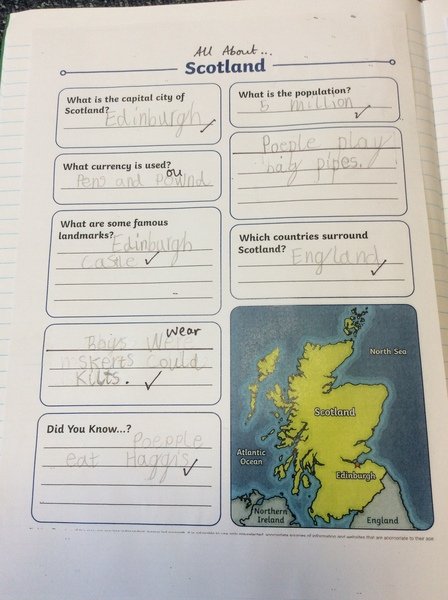 All About...
Scotland
What is the capital city of
Scotland?
Edinburgh
What is the population?
5 million
What currency is used?
ou
Pens and Pownd
Poeple play
baig pipes.
What are some famous
landmarks?
Edinburgh
Castle
Which countries surround
Scotland?
England
wear
Boys Were
skerts Could
Kilts.
Did You Know...?
Poepple
eat Haggis
North Sea
Scotland
Atlantic
Ocean
Edinburgh
Northern
Ireland
England